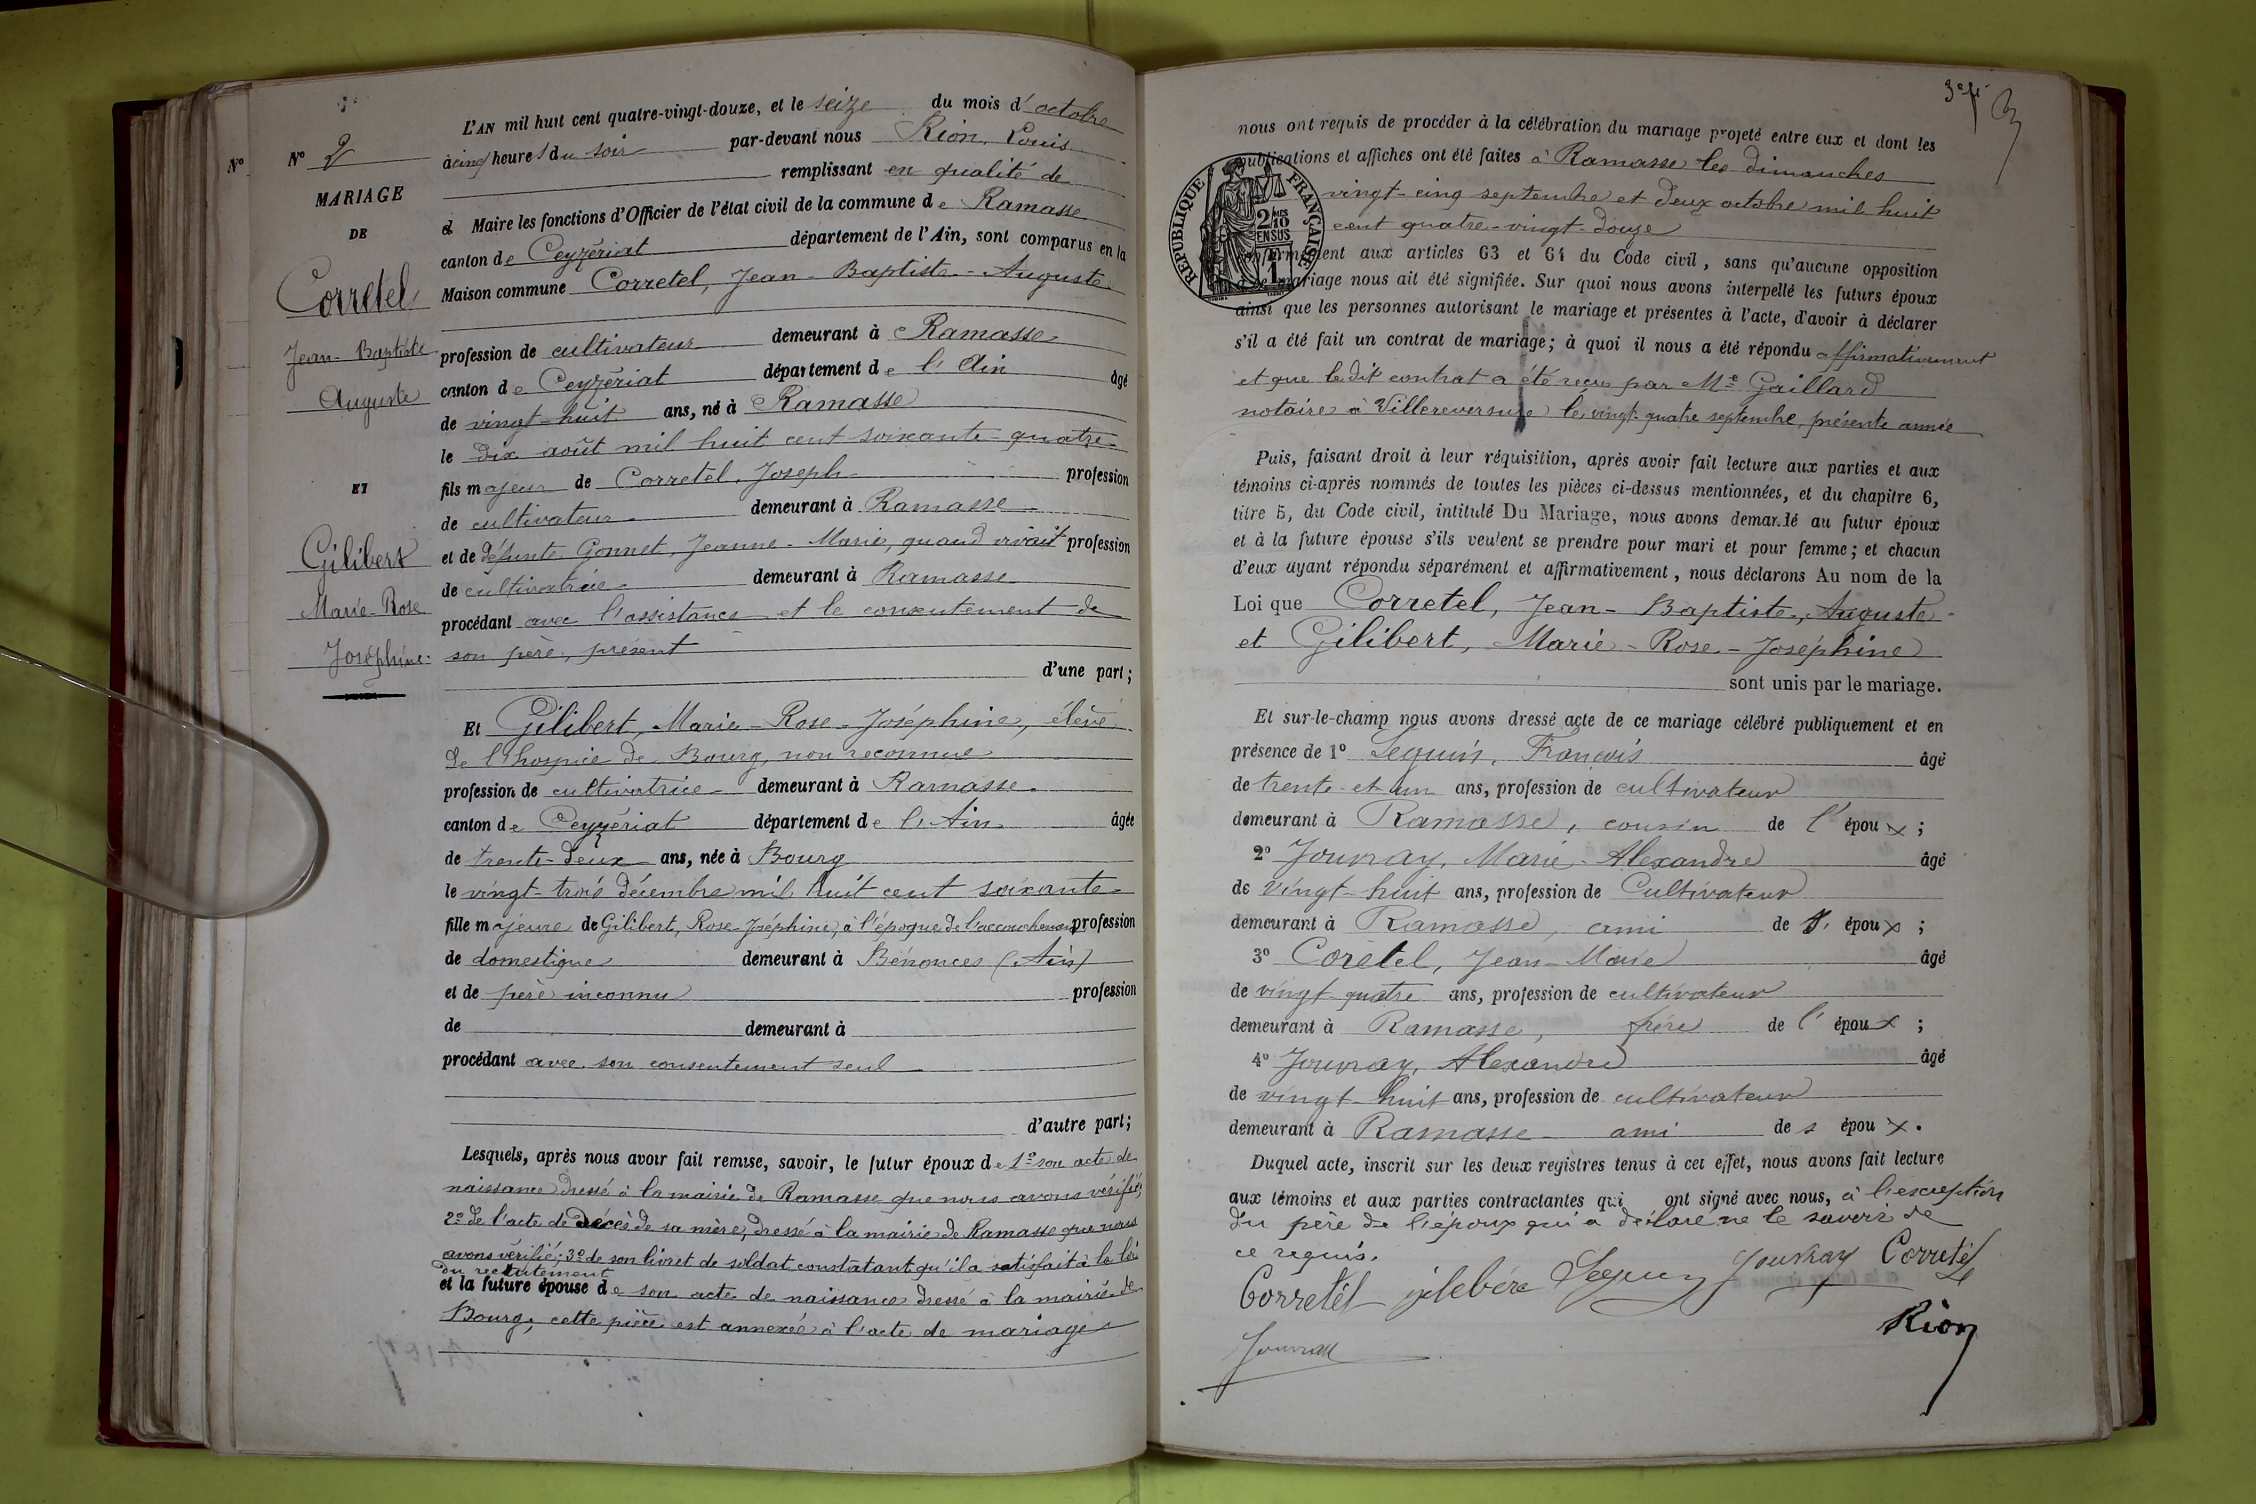 L'AN mil huit cent quatre-vingt-douze, et le seize du mois d'octobre
à cinq heures du soir par-devant nous Rion, Louis
remplissant en qualité de
Maire les fonctions d'Officier de l'état civil de la commune de Ramasse
canton de Ceyzériat département de l'Ain, sont comparus en la
Maison commune Corretel, Jean-Baptiste-Auguste
profession de cultivateur demeurant à Ramasse
canton de Ceyzériat département de l'Ain âgé
de vingt-huit ans, né à Ramasse
le dix août mil huit cent soixante-quatre
fils majeur de Corretel, Joseph profession
de cultivateur demeurant à Ramasse
et de défunte Gonnet, Jeanne-Marie, quand vivait profession
de cultivatrice demeurant à Ramasse
procédant avec l'assistance et le consentement de
son père, présent
d'une part;
Nº
Nº 2
MARIAGE
DE
Corretel
Jean-Baptiste
Auguste
ET
Gilibert
Marie-Rose
Joséphine
Et Gilibert, Marie-Rose-Joséphine, élève
de l'hospice de Bourg, non reconnue
profession de cultivatrice demeurant à Ramasse
canton de Ceyzériat département de l'Ain âgée
de trente-deux ans, née à Bourg
le vingt-trois décembre mil huit cent soixante
fille majeure de Gilibert, Rose-Joséphine, à l'époque de l'accouchement profession
de domestique demeurant à Bénonces (Ain)
et de père inconnu profession
de demeurant à
procédant avec son consentement seul
d'autre part;
Lesquels, après nous avoir fait remise, savoir, le futur époux de 1º son acte de
naissance dressé à la mairie de Ramasse que nous avons vérifié;
2º de l'acte de décès de sa mère, dressé à la mairie de Ramasse que nous
avons vérifié; 3º de son livret de soldat constatant qu'il a satisfait à la loi
du recrutement
et la future épouse de son acte de naissance dressé à la mairie de
Bourg, cette pièce est annexée à l'acte de mariage
3e f.
3
nous ont requis de procéder à la célébration du mariage projeté entre eux et dont les
publications et affiches ont été faites à Ramasse les dimanches
vingt-cinq septembre et deux octobre mil huit
cent quatre-vingt-douze
RÉPUBLIQUE FRANÇAISE
2/10
EN SUS
conformément aux articles 63 et 64 du Code civil, sans qu'aucune opposition
à ce mariage nous ait été signifiée. Sur quoi nous avons interpellé les futurs époux
ainsi que les personnes autorisant le mariage et présentes à l'acte, d'avoir à déclarer
s'il a été fait un contrat de mariage; à quoi il nous a été répondu affirmativement
et que le dit contrat a été reçu par Me Gaillard
notaire à Villereversure le vingt-quatre septembre, présente année
Puis, faisant droit à leur réquisition, après avoir fait lecture aux parties et aux
témoins ci-après nommés de toutes les pièces ci-dessus mentionnées, et du chapitre 6,
titre 5, du Code civil, intitulé Du Mariage, nous avons demandé au futur époux
et à la future épouse s'ils veulent se prendre pour mari et pour femme; et chacun
d'eux ayant répondu séparément et affirmativement, nous déclarons Au nom de la
Loi que Corretel, Jean-Baptiste, Auguste
et Gilibert, Marie-Rose-Joséphine
sont unis par le mariage.
Et sur-le-champ nous avons dressé acte de ce mariage célébré publiquement et en
présence de 1º Seguin, François âgé
de trente-et-un ans, profession de cultivateur
demeurant à Ramasse, cousin de l'époux;
2º Jouvray, Marie-Alexandre âgé
de vingt-huit ans, profession de Cultivateur
demeurant à Ramasse, ami de l' époux;
3º Corètel, Jean-Marie âgé
de vingt-quatre ans, profession de cultivateur
demeurant à Ramasse, frère de l'époux;
4º Jouvray, Alexandre âgé
de vingt-huit ans, profession de cultivateur
demeurant à Ramasse ami des époux.
Duquel acte, inscrit sur les deux registres tenus à cet effet, nous avons fait lecture
aux témoins et aux parties contractantes qui ont signé avec nous, à l'exception
du père de l'époux qui a déclaré ne le savoir de
ce requis.
Corretel gilebére Seguin Jouvray Corretel
Rion
Jouvray